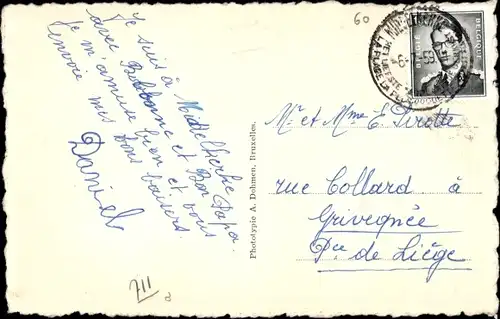 Je suis à Middelkerke
avec Bobonne et Bon Papa.
Je m'amuse bien et vous
envoie mes bons baisers.
Daniel
711
Phototypie A. Dohmen, Bruxelles.
60
MIDDELKERKE
-6-7-59
BELGIQUE
Mr et Mme E. Pirotte
rue Collard à
Grivegnée
Pce de Liège